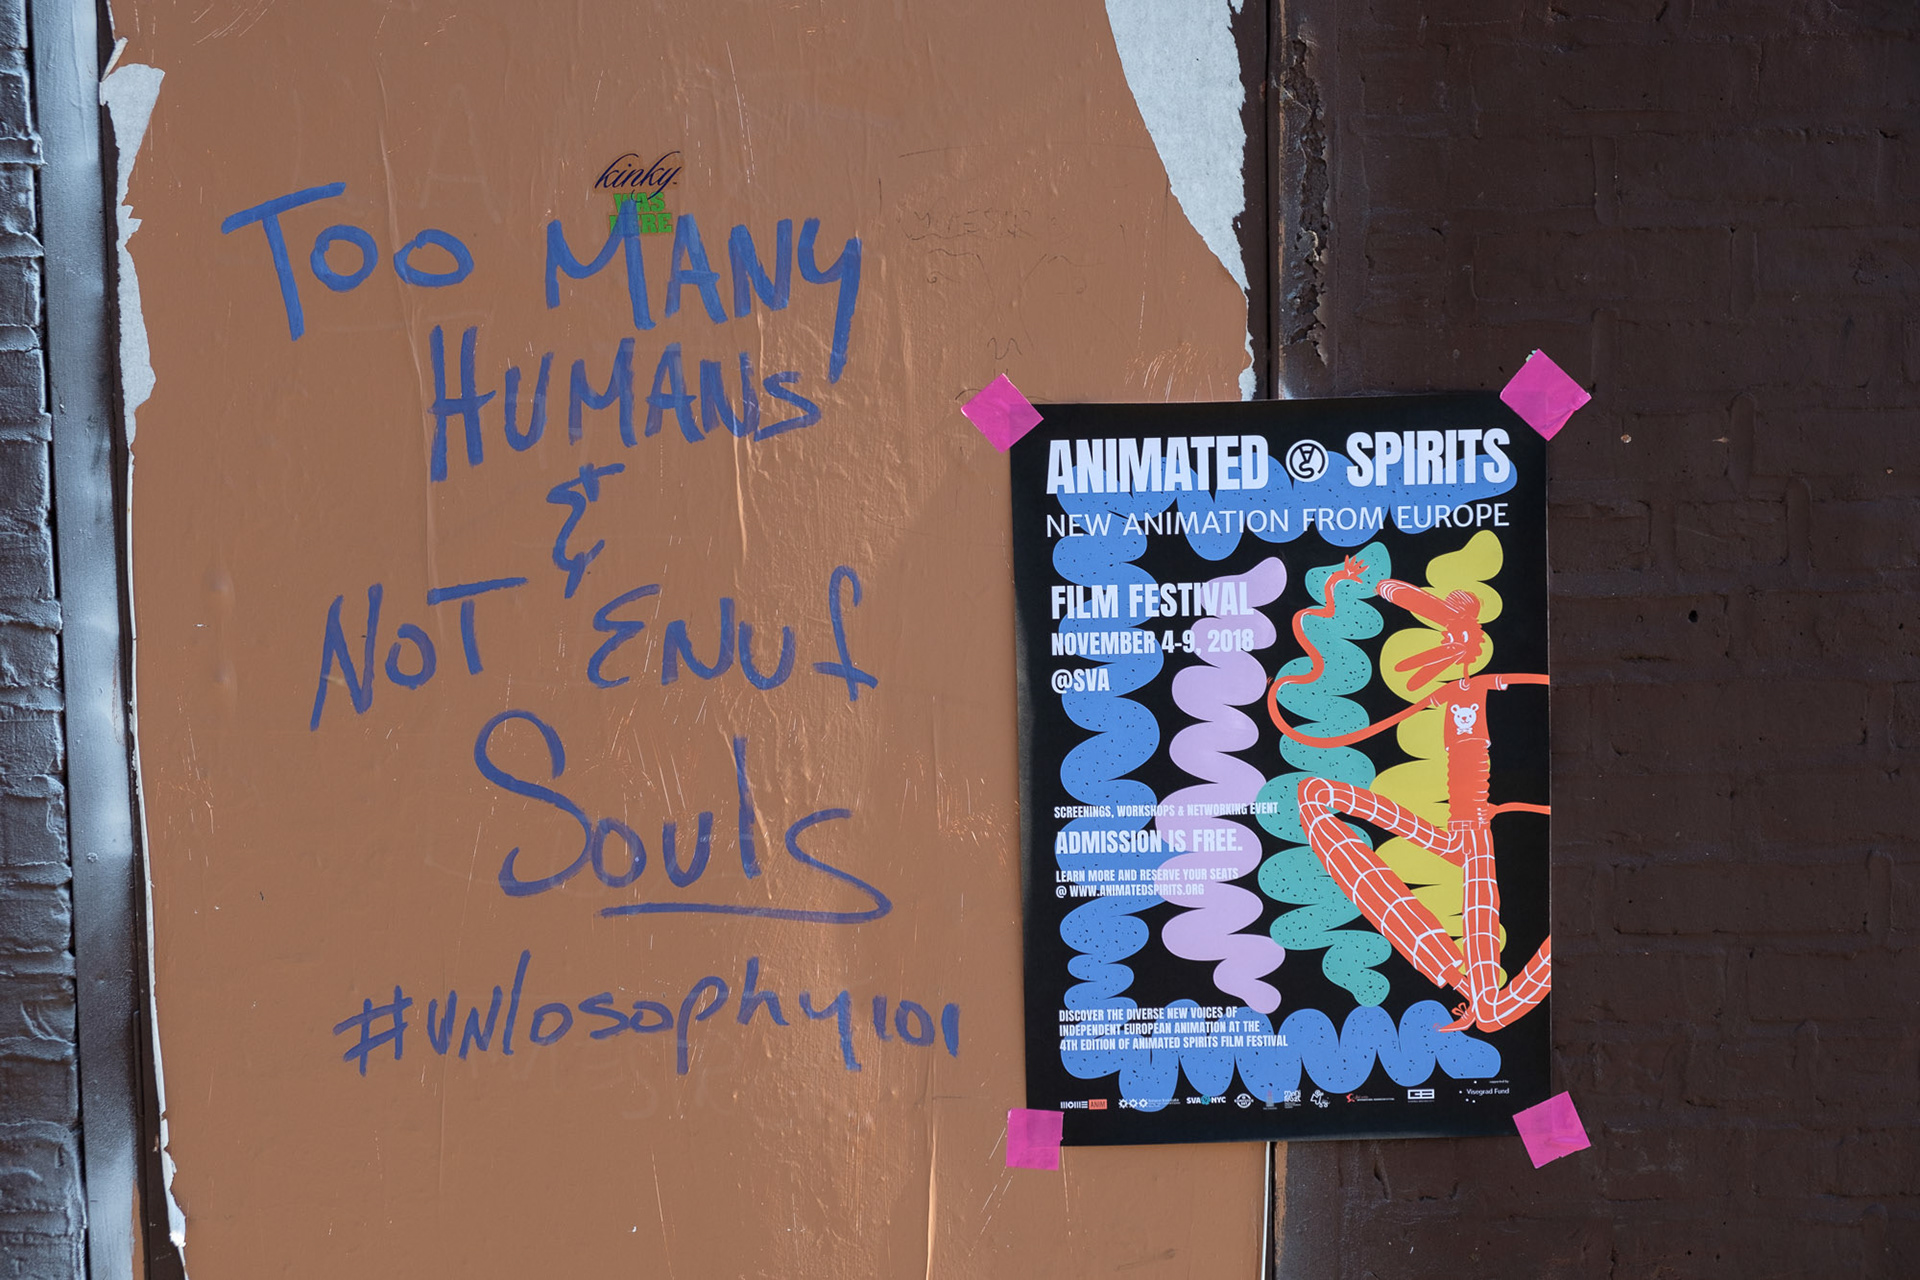 kinky.
WAS
HERE
Too MANy
HUMANS
&
NoT ENUf
Souls
#UNlosophy101
ANIMATED SPIRITS
NEW ANIMATION FROM EUROPE
FILM FESTIVAL
NOVEMBER 4-9, 2018
@SVA
SCREENINGS, WORKSHOPS & NETWORKING EVENT
ADMISSION IS FREE.
LEARN MORE AND RESERVE YOUR SEATS
@ WWW.ANIMATEDSPIRITS.ORG
DISCOVER THE DIVERSE NEW VOICES OF
INDEPENDENT EUROPEAN ANIMATION AT THE
4TH EDITION OF ANIMATED SPIRITS FILM FESTIVAL
supported by
ANIM SVA NYC Visegrad Fund